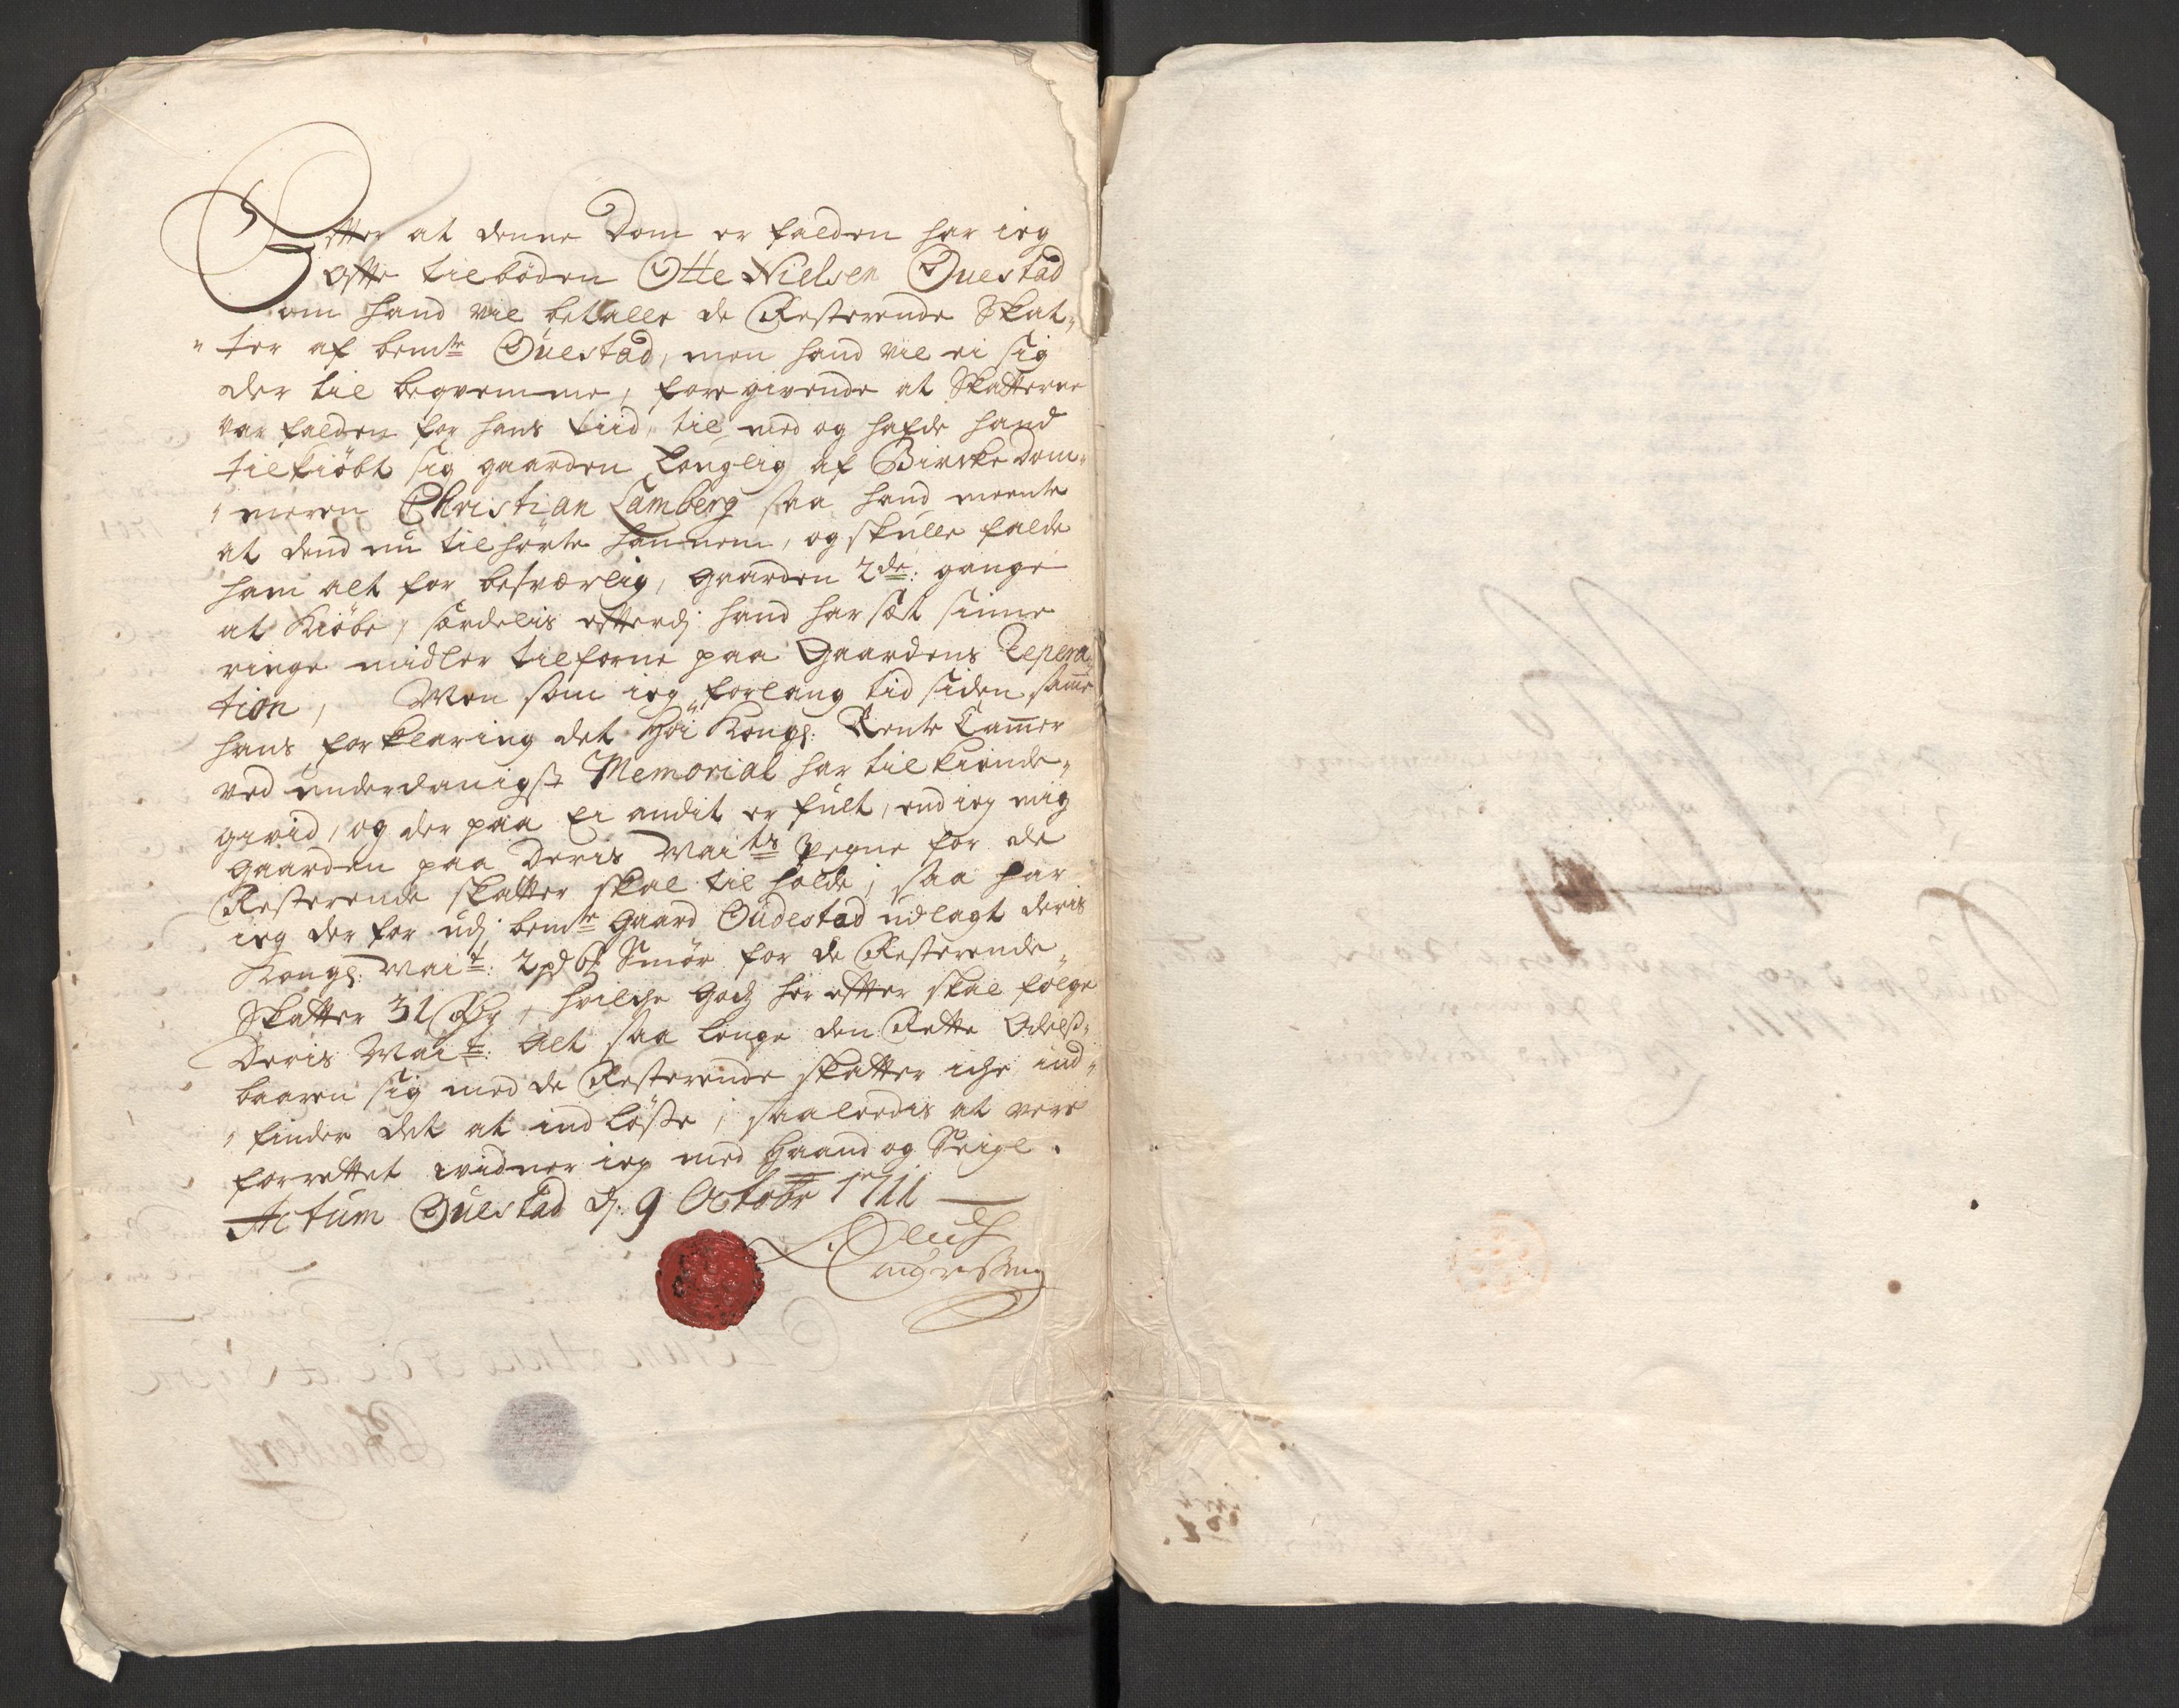 Efter at denne Dom er falden har ieg
ofte tilböden Otte Nielsen Ouestad
om hand vil betalle de Resterende Skat„
„ter af bemte Ouestad, men hand vil ei sig
der til beqvemme, foregivende at Skatterne
var falden for hans tiid, til med og hafde hand
tilkiöbt sig gaarden Longlig af Bircke Dom„
„meren Christian Lamberg saa hand meente
at dend nu tilhörte hannem, og skulle falde
ham alt for besværlig, Gaarden 2de: gange
at Kiöbe, særdelis efterdj hand har sæt sinne
ringe midler tilforne paa Gaardens Repera„
tion, Men som ieg forlang tid siden samme
hans forklaring det Höi Kongl: Rente Cammer
ved underdanigst Memorial har tilkiende„
givid, og der paa Ei andit er fult, end ieg mig
Gaarden paa Deris Maits Vegne for de
Resterende skatter skal til holde; saa har
ieg der for udj bemte Gaard Oudestad udlagt deris
Kongl: Mait: 2 pd 6 Smör for de Resterende„
Skatter 31 Rdr, hvilche Godz her effter skal fölge
Deris Mait: Alt saa lenge den Rette Odelß„
baaren sig med de Resterende skatter iche ind„
„finder det at indlöße; saaleedis at vere
forrettet vidner ieg med Haand og Seigl.
Actum Ouestad d: 9 Octobr 1711
Oluf